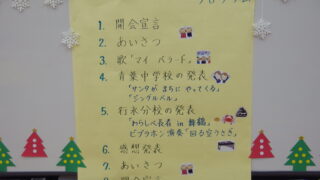 プログラム
1. 開会宣言
2. あいさつ
3. 歌「マイ バラード」
4. 青葉中学校の発表
「サンタが まちに やってくる」
「ジングルベル」
5. 行永分校の発表
「わらしべ長者 in 舞鶴」
ビブラホン演奏「回る空うさぎ」
6. 感想発表
7. あいさつ